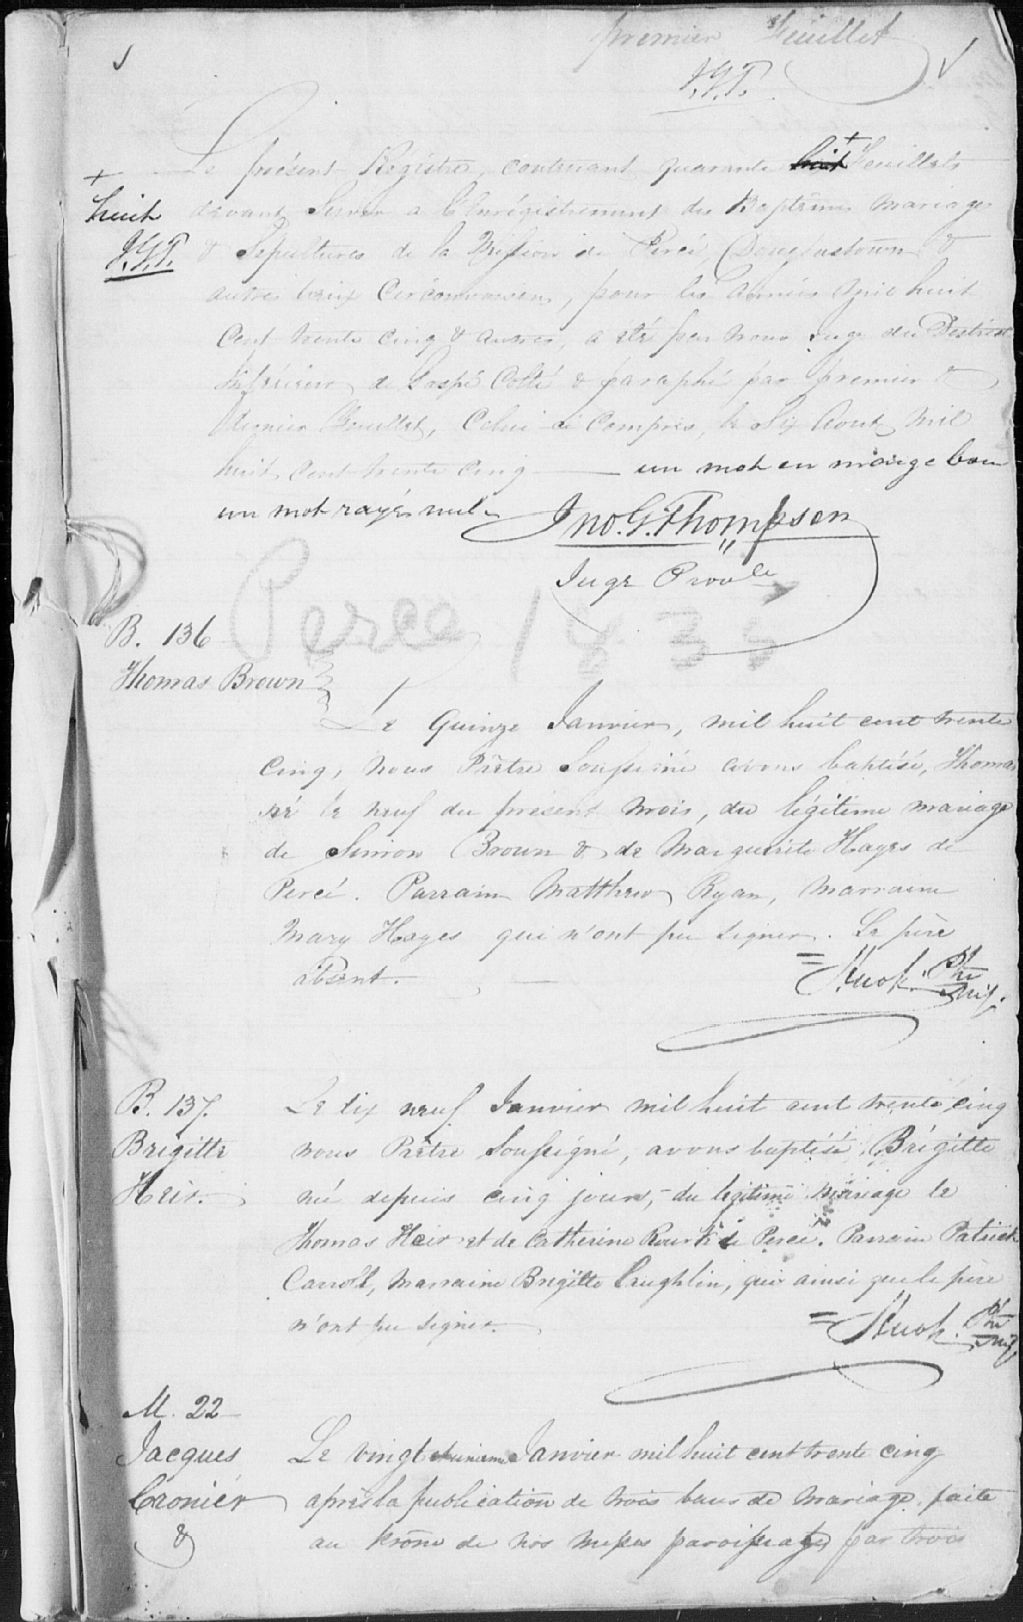 premier feuillet
J.G.T.
Le présent Régistre, contenant quarante + feuillets
+ huit
J.G.T.
devant Servir a l'Enrégistrement des Baptêmes Mariages
& Sepultures de la Mission de Percé, Douglastown &
autres lieux Circonvoisins, pour les Années Mil huit
Cent trente Cinq & autres, a été par nous Juge du District
Inférieur de Gaspé Cotté & paraphé par premier &
dernier feuillet, Celui ci Compris, le Six Aout Mil
huit Cent trente Cinq — un mot en marge bon
un mot rayé nul
Jno. G. Thompson
Juge Provle
Percé 1835
B. 136
Thomas Brown
Le Quinze Janvier, mil huit cent trente
cinq, nous Prêtre Soussigné avons baptisé, Thomas
né le neuf du présent mois, du légitime mariage
de Simon Brown & de Marguerite Hayes de
Percé. Parrain Matthew Ryan, Marraine
Mary Hayes qui n'ont pu signer. Le père
absent. —
Ptre
Miss.
B. 137.
Brigitte
Heir.
Le dix neuf Janvier mil huit cent trente cinq
nous Prêtre Soussigné, avons baptisé Brégitte
né depuis cinq jours, du légitime mariage de
Thomas Heir et de Catherine Rourk de Percé. Parrain Patrick
Carroll, Marraine Brigitte Laughlin, qui ainsi que le père
n'ont pu signer.
Ptre
Miss.
M. 22
Jacques
Cronier
&
Le vingt Janvier mil huit cent trente cinq
après la publication de trois bans de mariage faite
au prône de nos messes paroissiales par trois